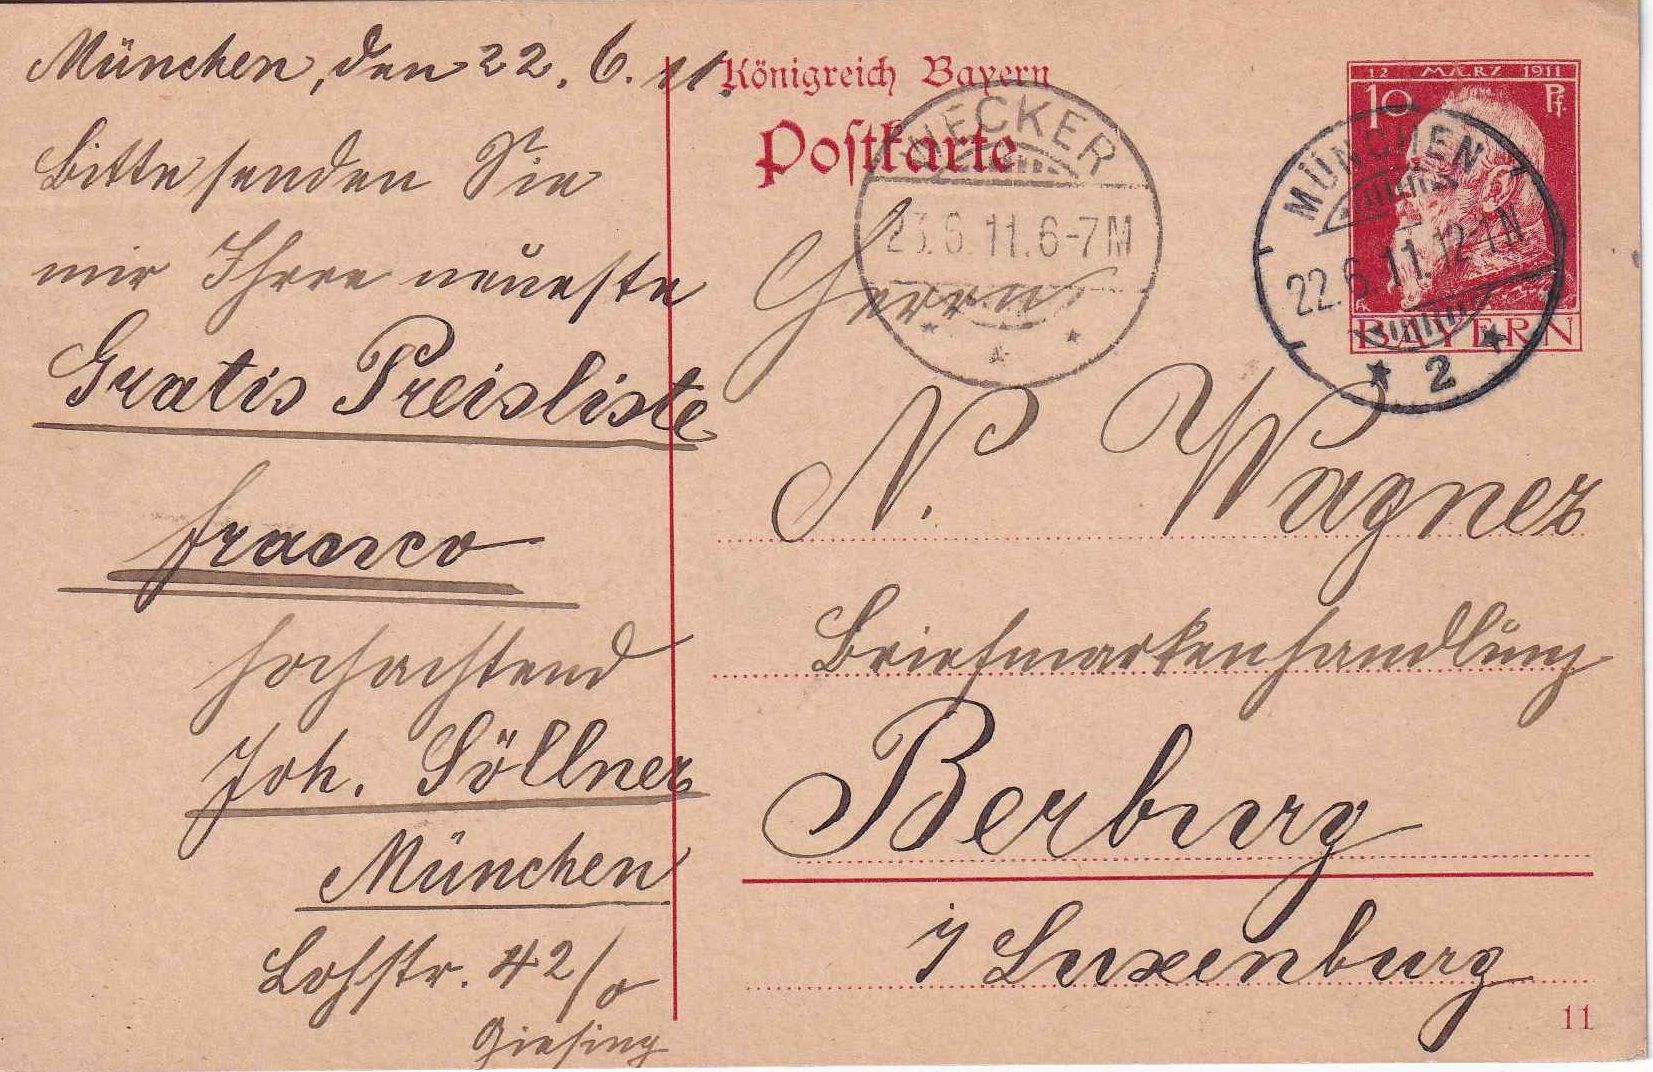 München, den 22. 6. 11.
Bitte senden Sie
mir Ihre neueste
Gratis Preisliste
franco
hochachtend
Joh. Söllner
München
Lohstr. 42/0
Giesing
Königreich Bayern
Postkarte
WECKER
23.6.11.6-7M
12 MÄRZ 1911
10 Pf.
BAYERN
MÜNCHEN
22.6.11.12-1N.
2
Herrn
N. Wagner
Briefmarkenhandlung
Berburg
i/ Luxenburg
11